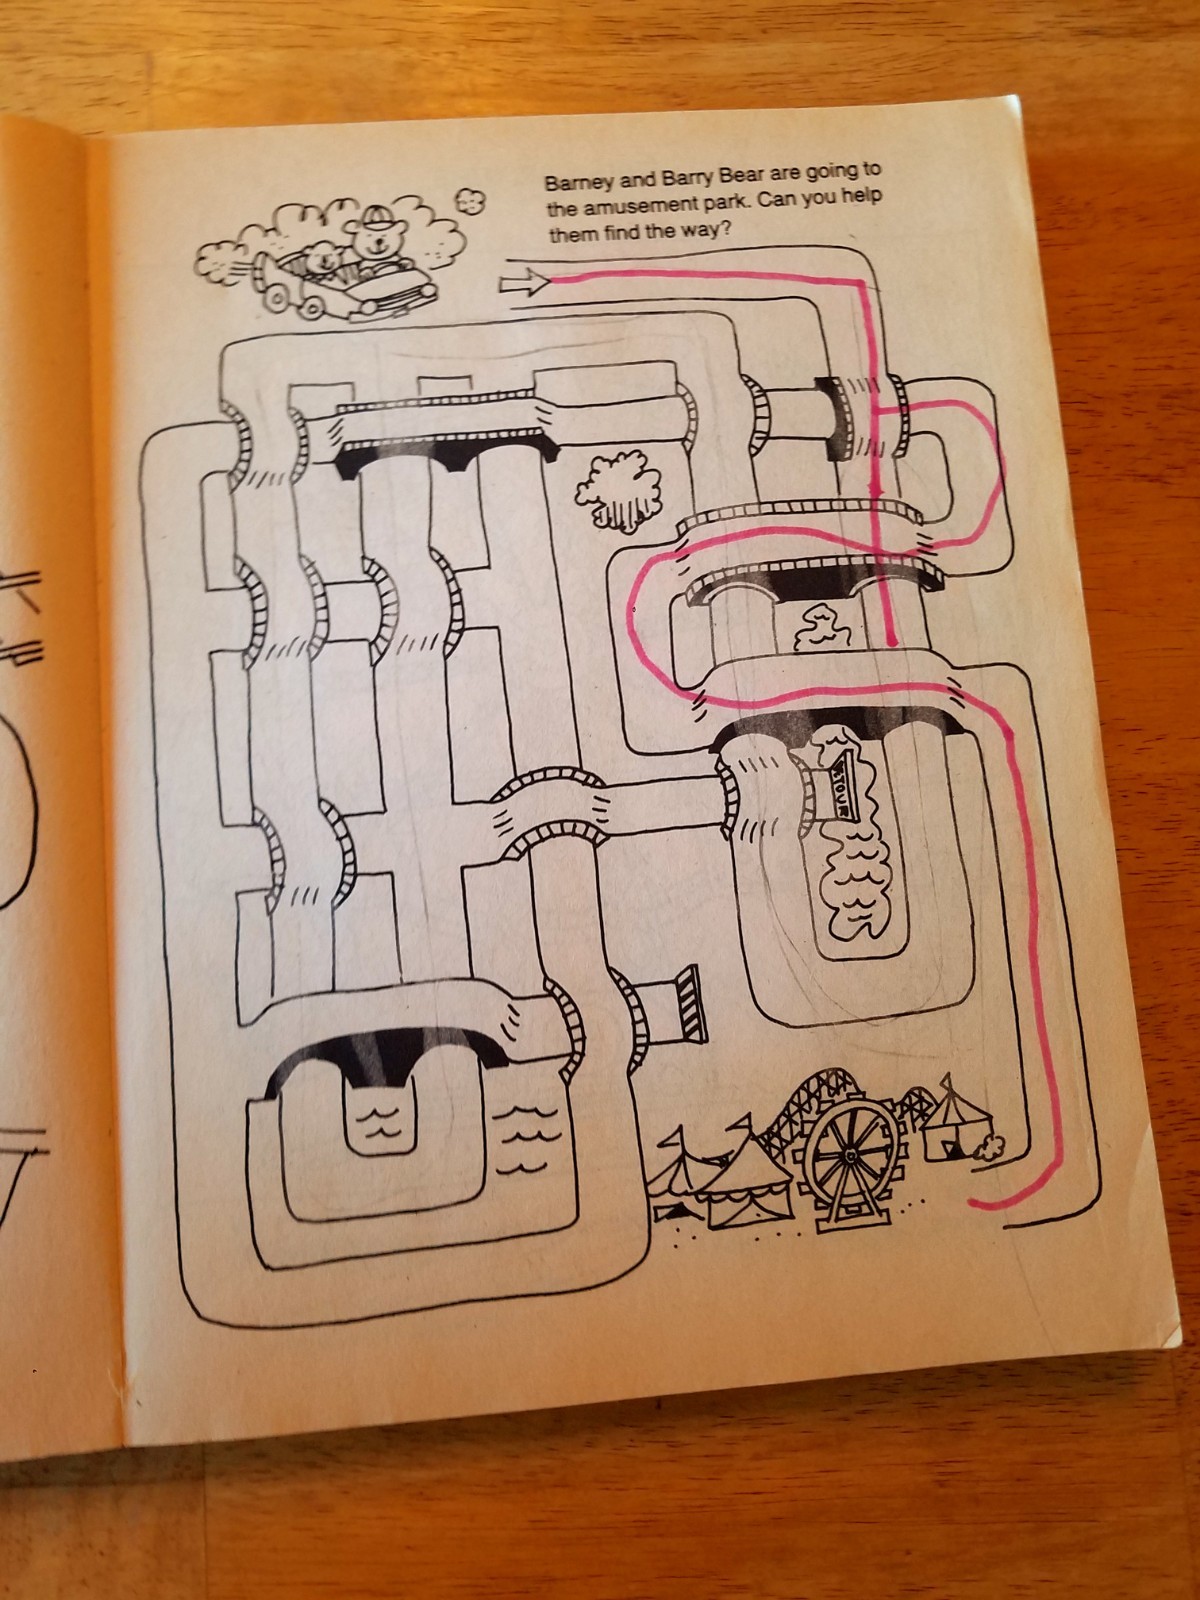 Barney and Barry Bear are going to
the amusement park. Can you help
them find the way?
DETOUR